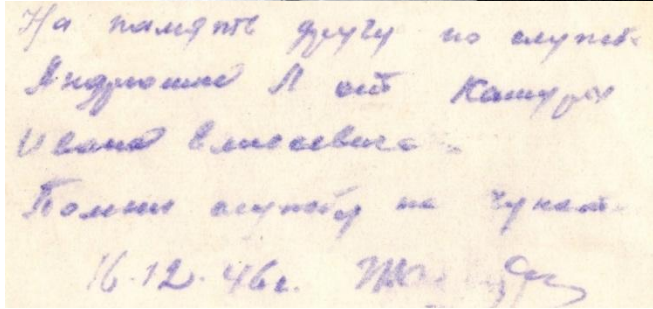 На память другу по службе
Андрюшке Л от Кашуры
Ивана Елисеевича
Помни службу на
16.12.46г.